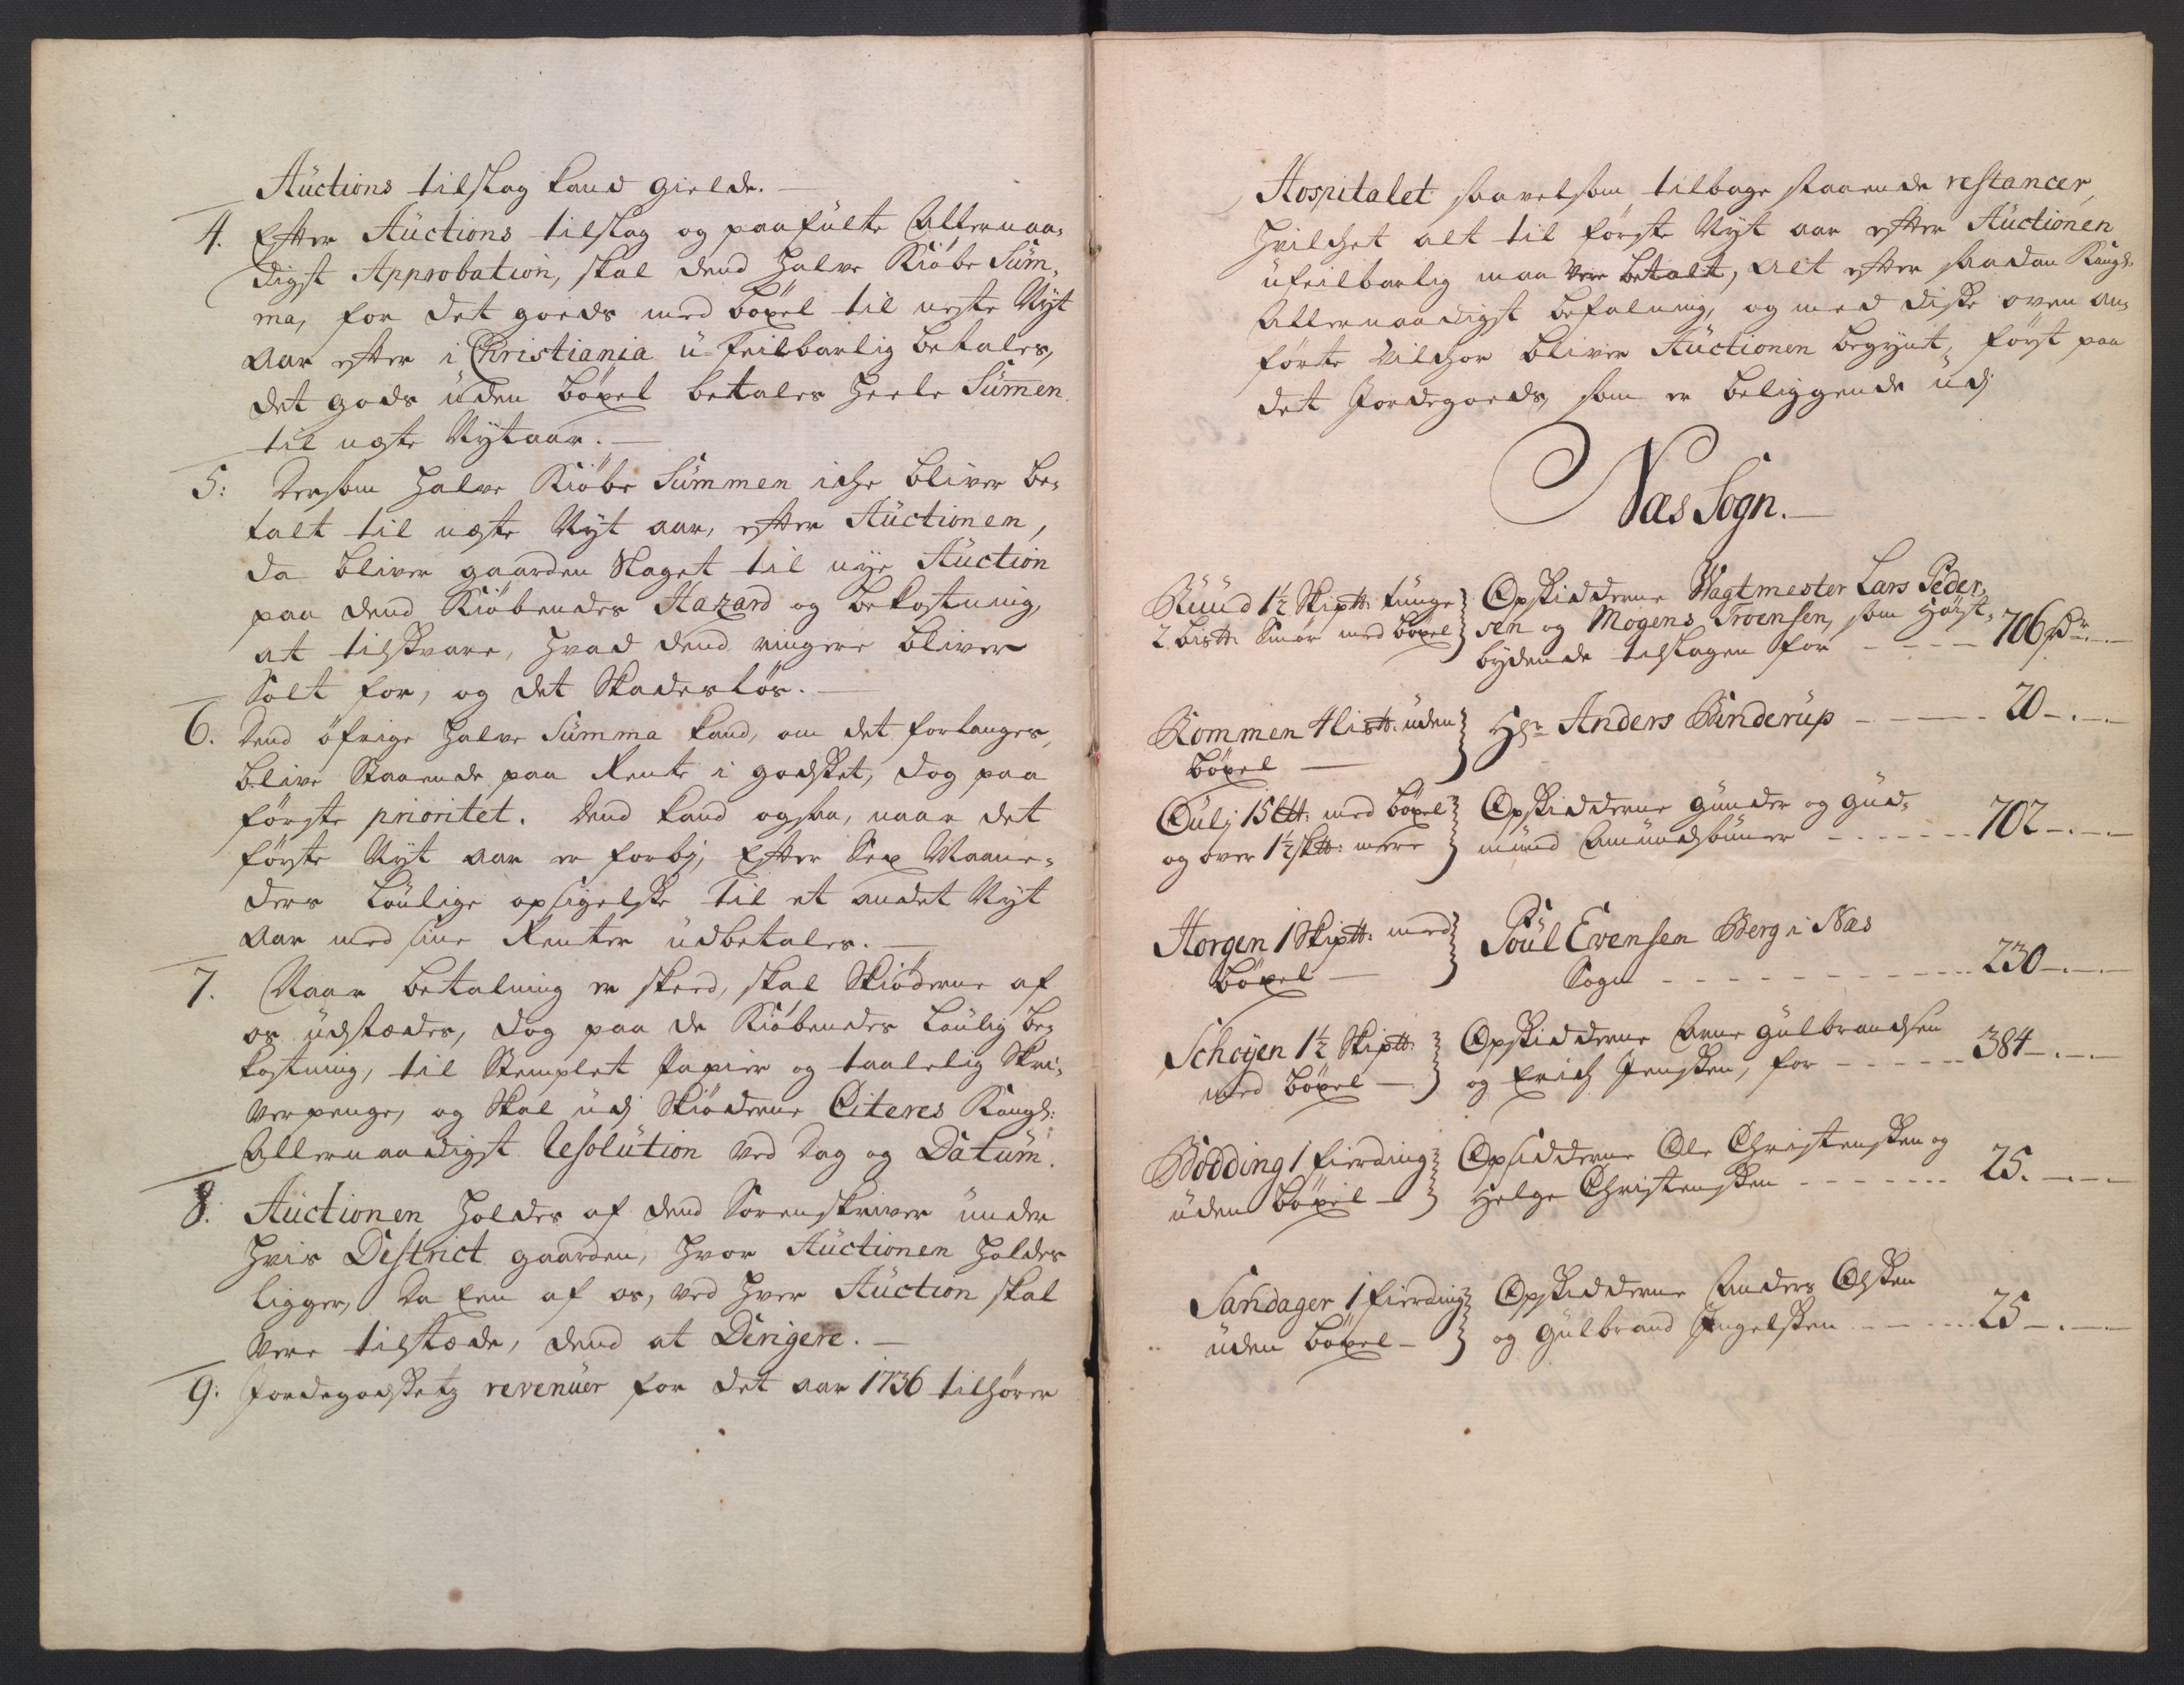 Auctions tilslag kand gielde.
4. Efter Auctions tilslag og paafulte Allernaa-
digst Approbation, skal dend halve Kiøbe Sum-
ma, for det goeds med böxel til neste Nyt
Aar efter i Christiania u-feilbarlig betales,
det gods uden böxel betales heele Summen
til neste Nytaar.
5: Dersom halve Kiøbe Summen iche bliver be-
talt til neste Nyt aar, efter Auctionen,
da bliver gaarden staaet til nye Auction
paa dend Kiøbendes Hazard og bekostning,
at tilsvare, hvad dend ringere bliver
solt for, og det skadesløs.
6. Dend øfrige halve Summa kand, om det forlanges,
blive staaende paa Rente i godset, dog paa
første prioritet. Dend kand ogsaa, naar det
første Nyt aar er forbj, Efter Sex Maane-
ders Loulige opsigelse til et andet Nyt
Aar med sine Renter udbetales.
7. Naar betalning er skeed, skal Skiøderne af
os udstædes, dog paa de Kiøbendes Loulig be-
kostning, til Stemplet Papier og taalelig Skri-
verpenge, og skal udj Skiøderne Citeres Kongl:
Allernaadigst Resolution ved Dag og Datum.
8. Auctionen holdes af dend Sorenskriver under
hvis District gaarden, hvor Auctionen holdes
ligger, Da Een af os, ved hver Auction skal
være tilstæde, dend at Dirigere.
9: Jordegodsetz revenuer for det aar 1736 tilhører
Hospitalet saavelsom tilbage staaende restancer,
hvilchet alt til første Nyt aar efter Auctionen
ufeilbarlig maa være betalt, alt efter saadan Kongl:
Allernaadigst befalning, og med diße oven an-
førte Vilchor bliver Auctionen begynt, først paa
det Jordegoeds, som er beliggende udj
Næs Sogn.
Ruud 1½ Skip℔: tunge Opsidderne Wagtmester Lars Peder-
2 bis℔: Smør med böxel sen og Mogens Troensen, som høist-
bydende tilslagen for 706 Rdr.
Kommen 4 lis℔: uden Hr: Anders Bunderup 20
böxel
Oulj 15 L℔: med böxel Opsidderne Gunder og Gud-
og over 1½ sk℔: mere mund Amundsønner 702
Horgen 1 Skip℔: med Poul Evensen Berg i Næs
böxel Sogn 230
Schøyen 1½ Skip℔: Opsidderne Arne Gulbrandsen
med böxel og Erich Jensen, for 384
Bodding 1 fierding Opsidderne Ole Christensen og
uden böxel Helge Christensen 25.
Sandager 1 fierding Opsidderne Anders Olsen
uden böxel og Gulbrand Ingelsen 25